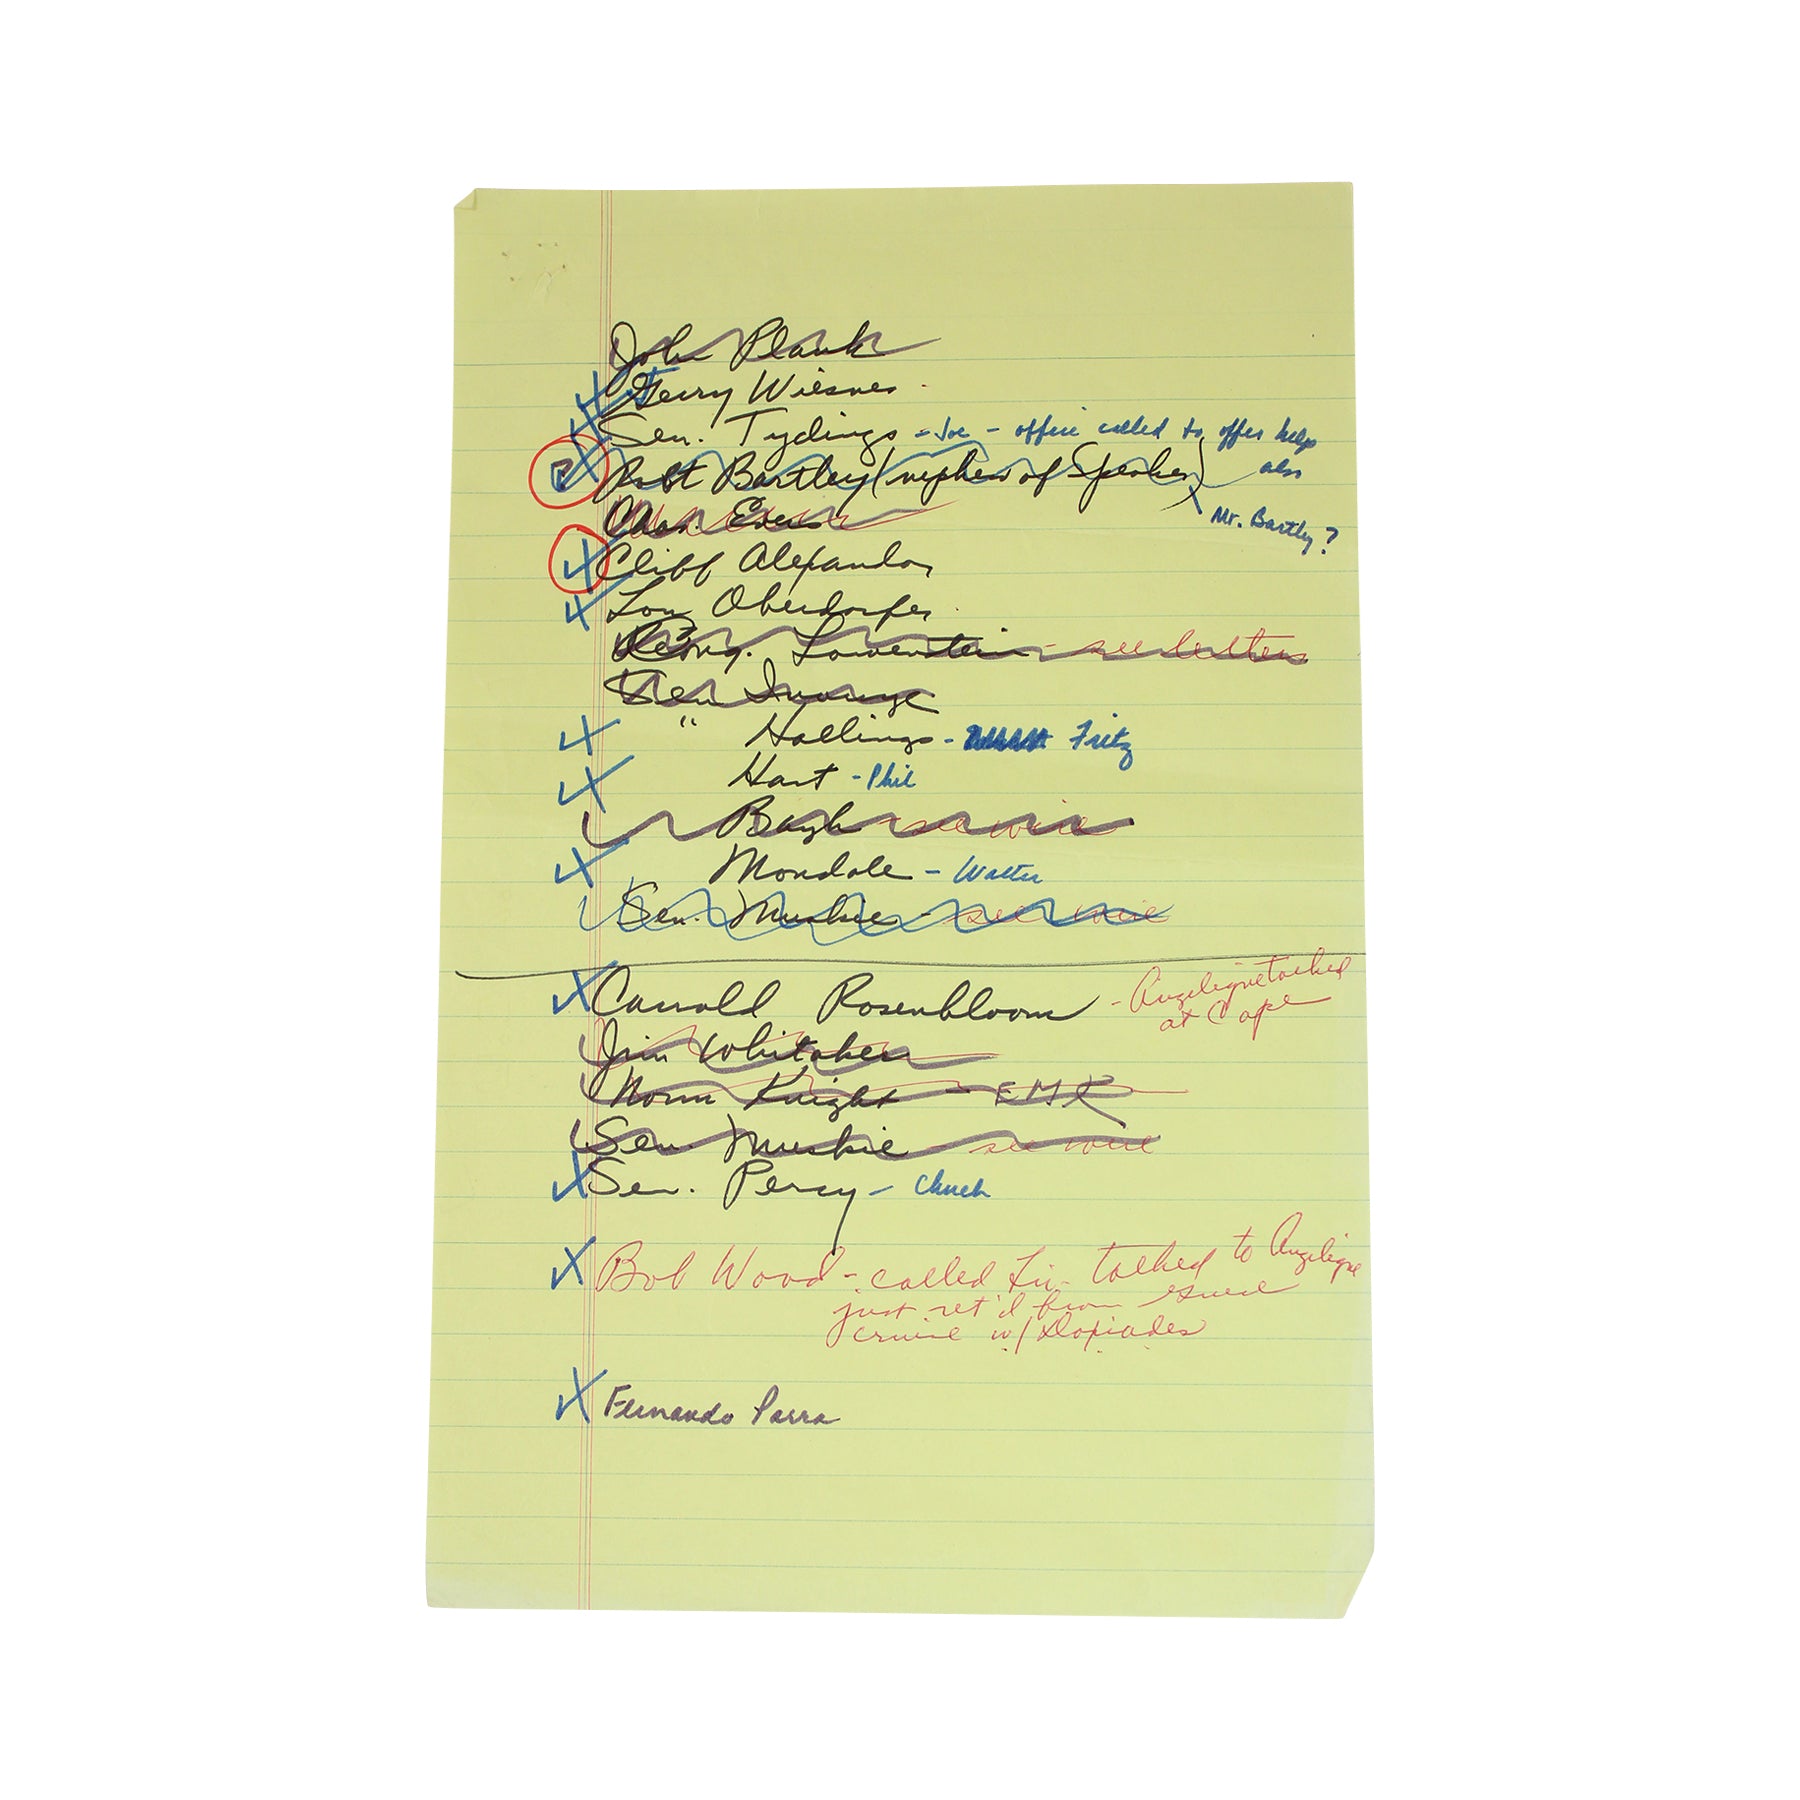 John Plank
Jerry Wiesner
Sen. Tydings - Joe - office called to offer help
Robt Bartley (nephew of Speaker) also
Mr. Bartley?
Chas. Evers
Cliff Alexander
Lou Oberdorfer
Cong. Lowenstein - see letters
Sen Inouye
" Hollings - Fritz
Hart - Phil
Bayh - see wire
Mondale - Walter
Sen. Muskie - see wire
Carrold Rosenbloom - Angelique talked
at Cape
Jim Whitaker
Norm Knight - EMK
Sen. Muskie - see wire
Sen. Percy - Chuck
Bob Wood - called Fri - talked to Angelique
just ret'd from
cruise w/
Fernando Parra